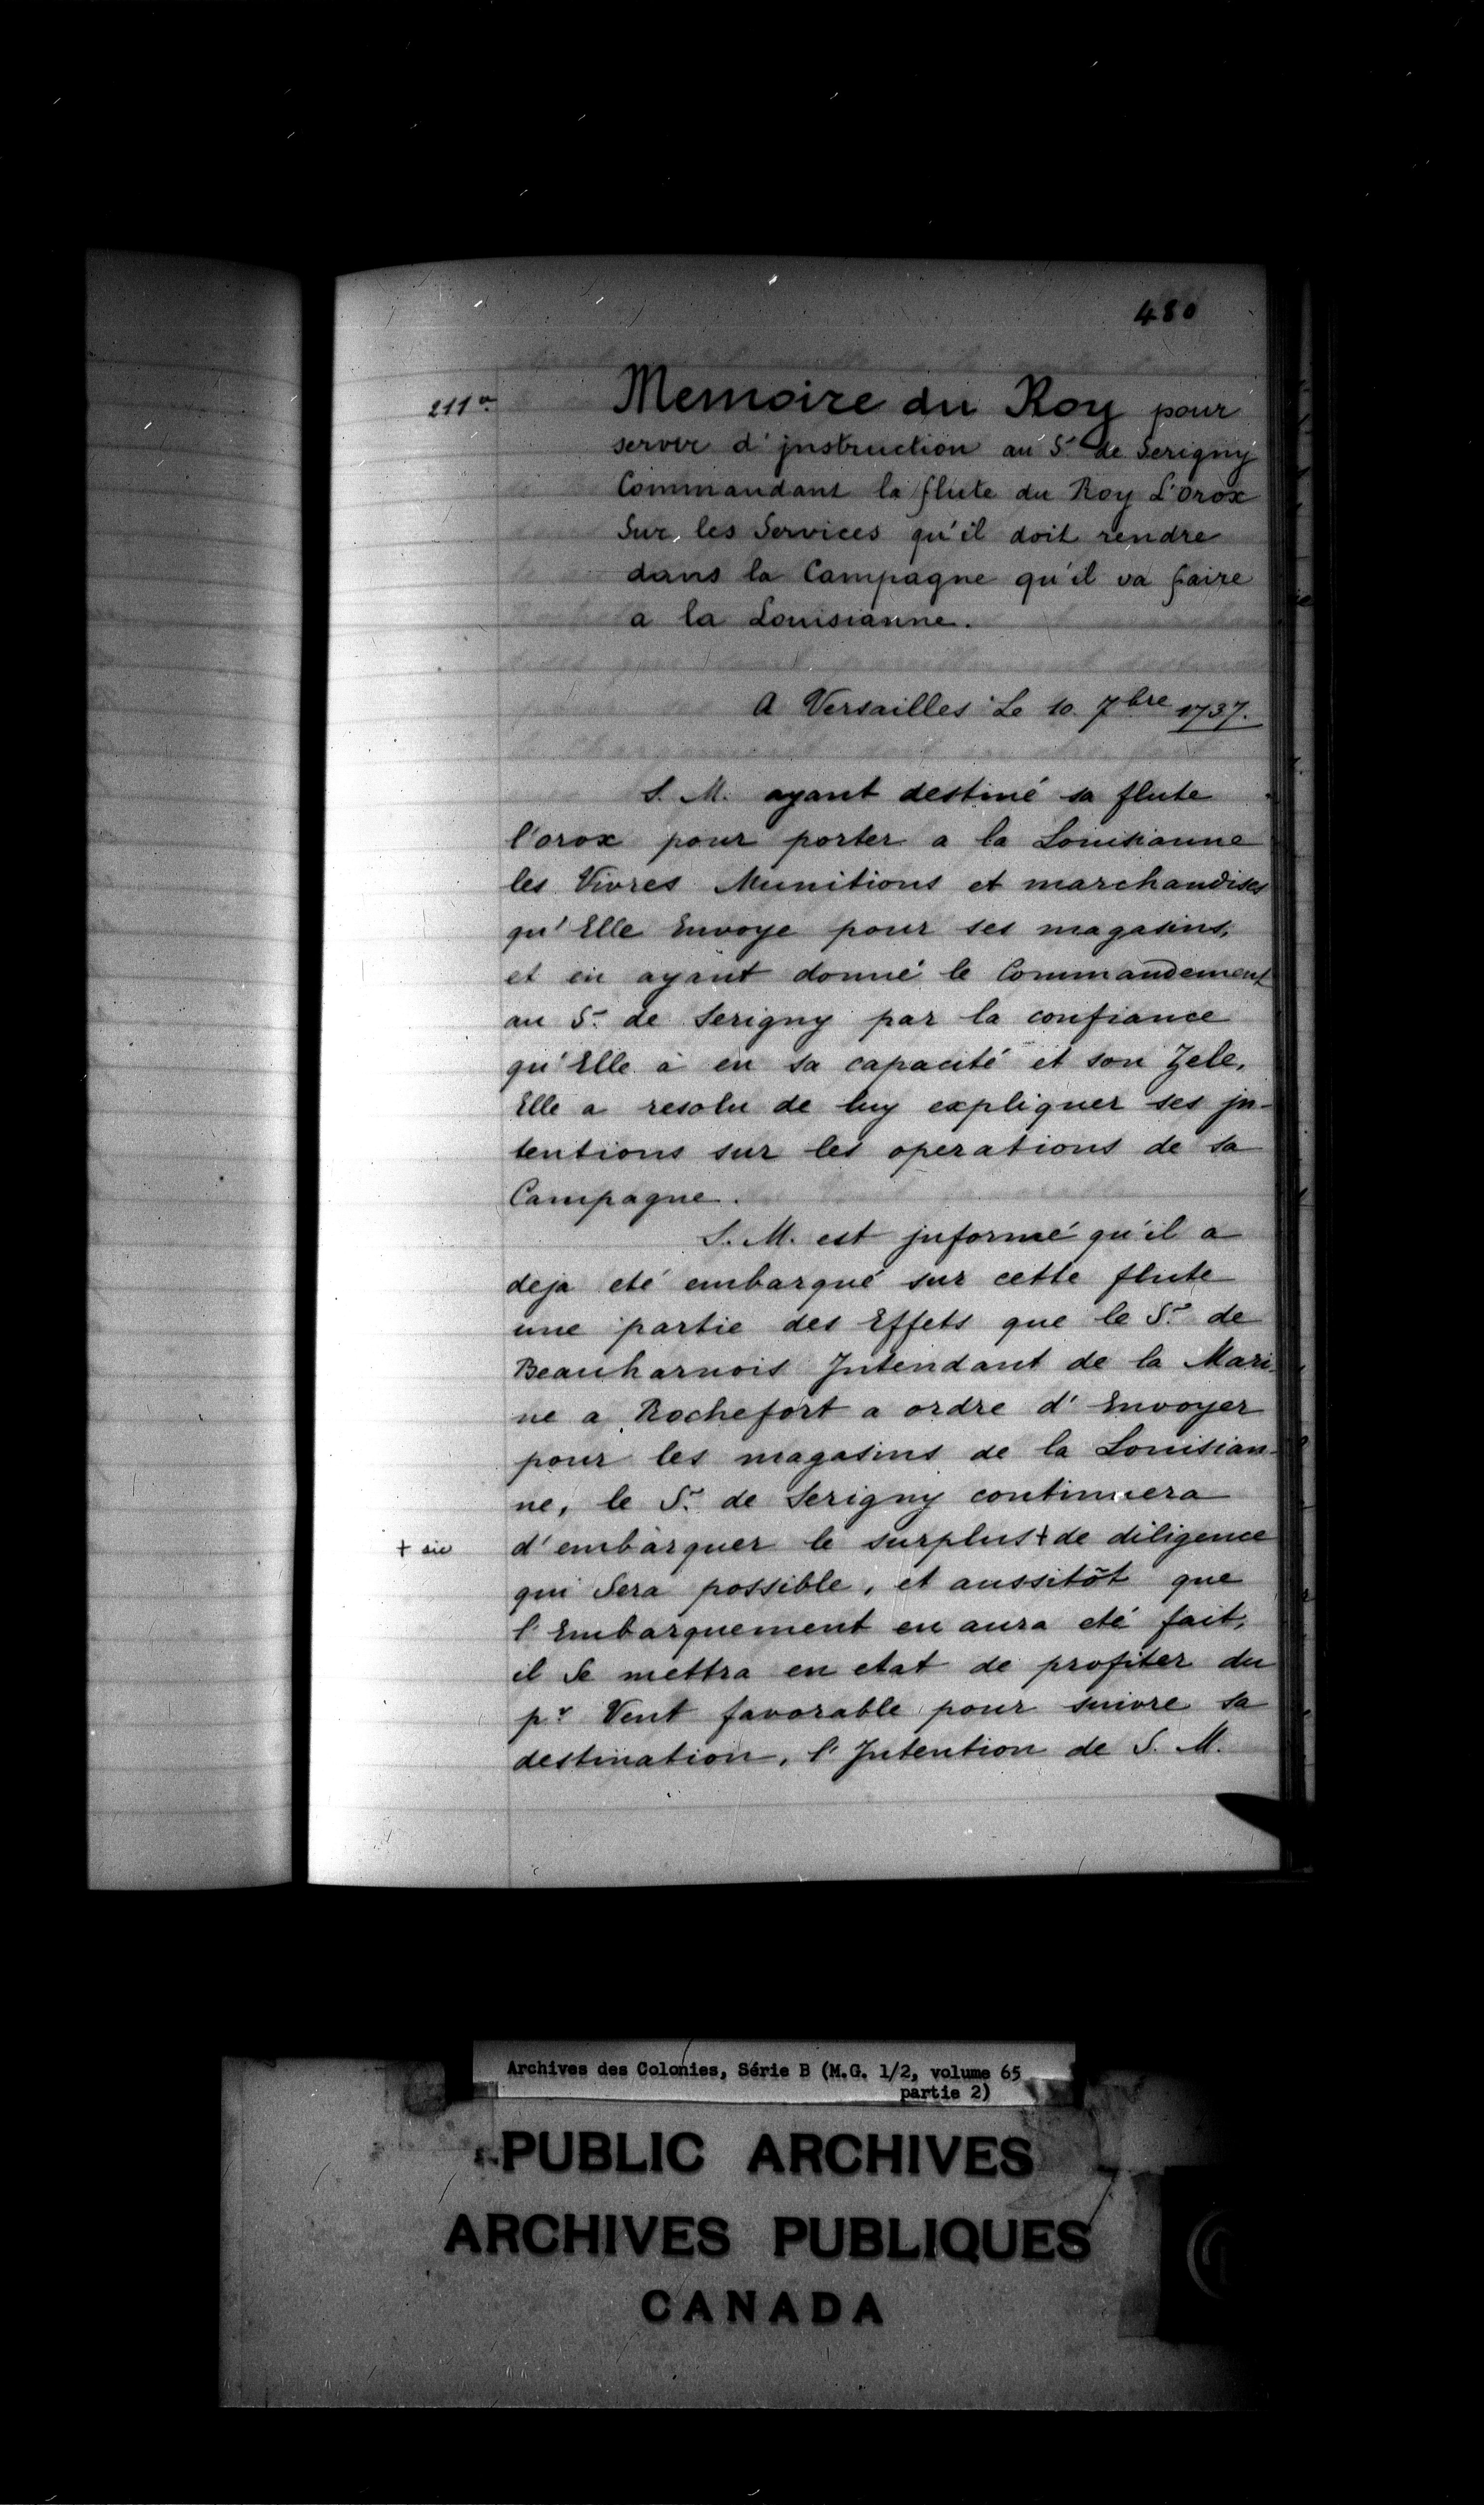 480
211 vo
Memoire du Roy pour
servir d'jnstruction au Sr de Serigny
Commandant la flute du Roy L'orox
Sur les Services qu'il doit rendre
dans la Campagne qu'il va faire
a la Louisianne.
A Versailles Le 10. 7bre 1737.
S. M. ayant destiné sa flute
l'orox pour porter a la Louisianne
les Vivres Munitions et marchandises
qu'Elle Envoye pour ses magasins,
et en ayant donné le Commandement
au Sr de Serigny par la confiance
qu'Elle à en sa capacité et son Zele,
Elle a resolu de luy expliquer ses jn-
tentions sur les operations de sa
Campagne.
S. M. est jnformé qu'il a
deja eté embarqué sur cette flute
une partie des Effets que le Sr de
Beauharnois Jntendant de la Mari-
ne a Rochefort a ordre d'Envoyer
pour les magasins de la Louisian-
ne, le Sr de Serigny continuera
+ sic
d'embarquer le surplus + de diligence
qui Sera possible, et aussitôt que
l'Embarquement en aura eté fait,
il Se mettra en etat de profiter du
pr Vent favorable pour suivre sa
destination, l'Jntention de S. M.
Archives des Colonies, Série B (M.G. 1/2, volume 65
partie 2)
PUBLIC ARCHIVES
ARCHIVES PUBLIQUES
CANADA